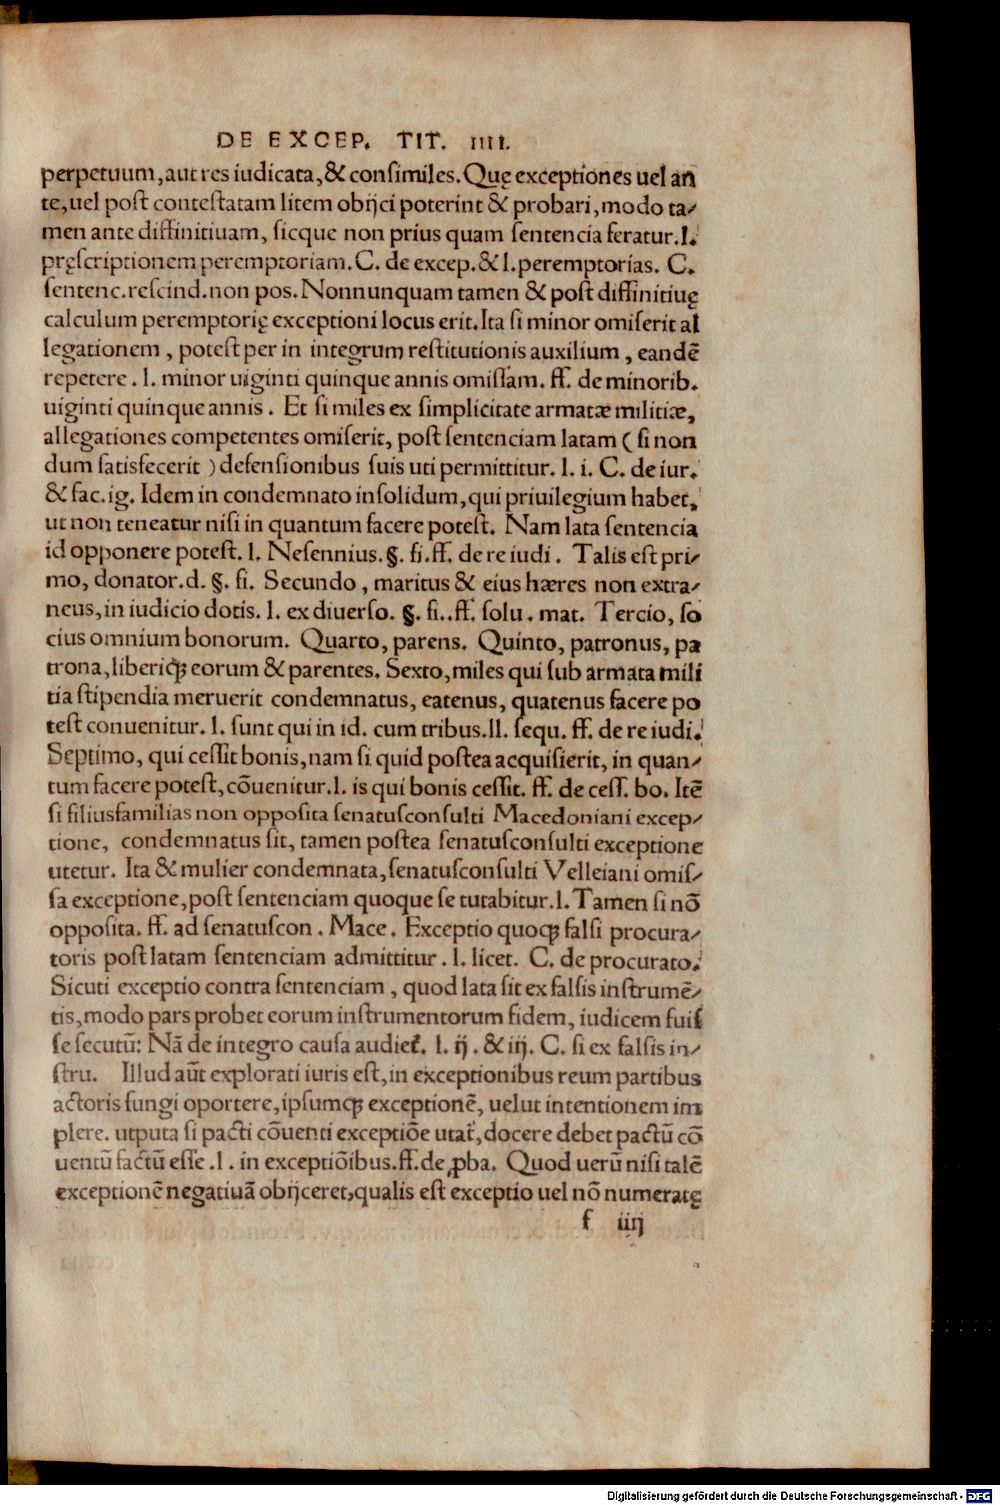 DE EXCEP. TIT. IIII.
perpetuum, aut res iudicata, & consimiles. Quę exceptiones uel an
te, uel post contestatam litem obijci poterint & probari, modo ta-
men ante diffinitiuam, sicque non prius quam sentencia feratur. l.
pręscriptionem peremptoriam. C. de excep. & l. peremptorias. C.
sentenc. rescind. non pos. Nonnunquam tamen & post diffinitiuę
calculum peremptorię exceptioni locus erit. Ita si minor omiserit al
legationem, potest per in integrum restitutionis auxilium, eandē
repetere. l. minor uiginti quinque annis omissam. ff. de minorib.
uiginti quinque annis. Et si miles ex simplicitate armatæ militiæ,
allegationes competentes omiserit, post sentenciam latam (si non
dum satisfecerit) defensionibus suis uti permittitur. l. i. C. de iur.
& fac. ig. Idem in condemnato insolidum, qui priuilegium habet,
ut non teneatur nisi in quantum facere potest. Nam lata sentencia
id opponere potest. l. Nesennius. §. fi. ff. de re iudi. Talis est pri-
mo, donator. d. §. fi. Secundo, maritus & eius hæres non extra-
neus, in iudicio dotis. l. ex diuerso. §. fi.. ff. solu. mat. Tercio, so
cius omnium bonorum. Quarto, parens. Quinto, patronus, pa
trona, liberiq; eorum & parentes. Sexto, miles qui sub armata mili
tia stipendia meruerit condemnatus, eatenus, quatenus facere po
test conuenitur. l. sunt qui in id. cum tribus. ll. sequ. ff. de re iudi.
Septimo, qui cessit bonis, nam si quid postea acquisierit, in quan-
tum facere potest, cōuenitur. l. is qui bonis cessit. ff. de cess. bo. Itē
si filiusfamilias non opposita senatusconsulti Macedoniani excep-
tione, condemnatus sit, tamen postea senatusconsulti exceptione
utetur. Ita & mulier condemnata, senatusconsulti Velleiani omis-
sa exceptione, post sentenciam quoque se tutabitur. l. Tamen si nō
opposita. ff. ad senatuscon. Mace. Exceptio quoq; falsi procura-
toris post latam sentenciam admittitur. l. licet. C. de procurato.
Sicuti exceptio contra sentenciam, quod lata sit ex falsis instrumē-
tis, modo pars probet eorum instrumentorum fidem, iudicem fuis
se secutū: Nā de integro causa audiet̄. l. ij. & iij. C. si ex falsis in-
stru. Illud aūt explorati iuris est, in exceptionibus reum partibus
actoris fungi oportere, ipsumq; exceptionē, uelut intentionem im
plere. utputa si pacti cōuenti exceptiōe utat̄, docere debet pactū cō
uentū factū esse. l. in exceptiōibus. ff. de ꝓba. Quod uerū nisi talē
exceptionē negatiuā obijceret, qualis est exceptio uel nō numeratę
f iiij
Digitalisierung gefördert durch die Deutsche Forschungsgemeinschaft - DFG